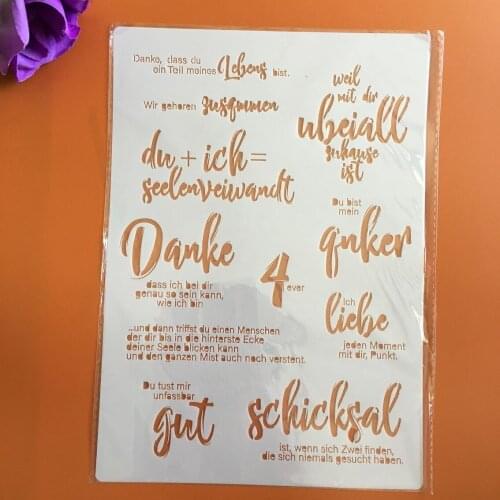 Danke, dass du
ein Teil meines Lebens bist.
weil
mit dir
ubeiall
zuhause
ist
Wir gehoren zusammen
du + ich =
seelenveiwandt
Du bist
mein
anker
Danke
dass ich bei dir
genau so sein kann,
wie ich bin
4 ever
Ich
liebe
jeden Moment
mit dir, Punkt.
...und dann triffst du einen Menschen
der dir bis in die hinterste Ecke
deiner Seele blicken kann
und den ganzen Mist auch noch versteht.
Du tust mir
unfassbar
gut
schicksal
ist, wenn sich Zwei finden,
die sich niemals gesucht haben.